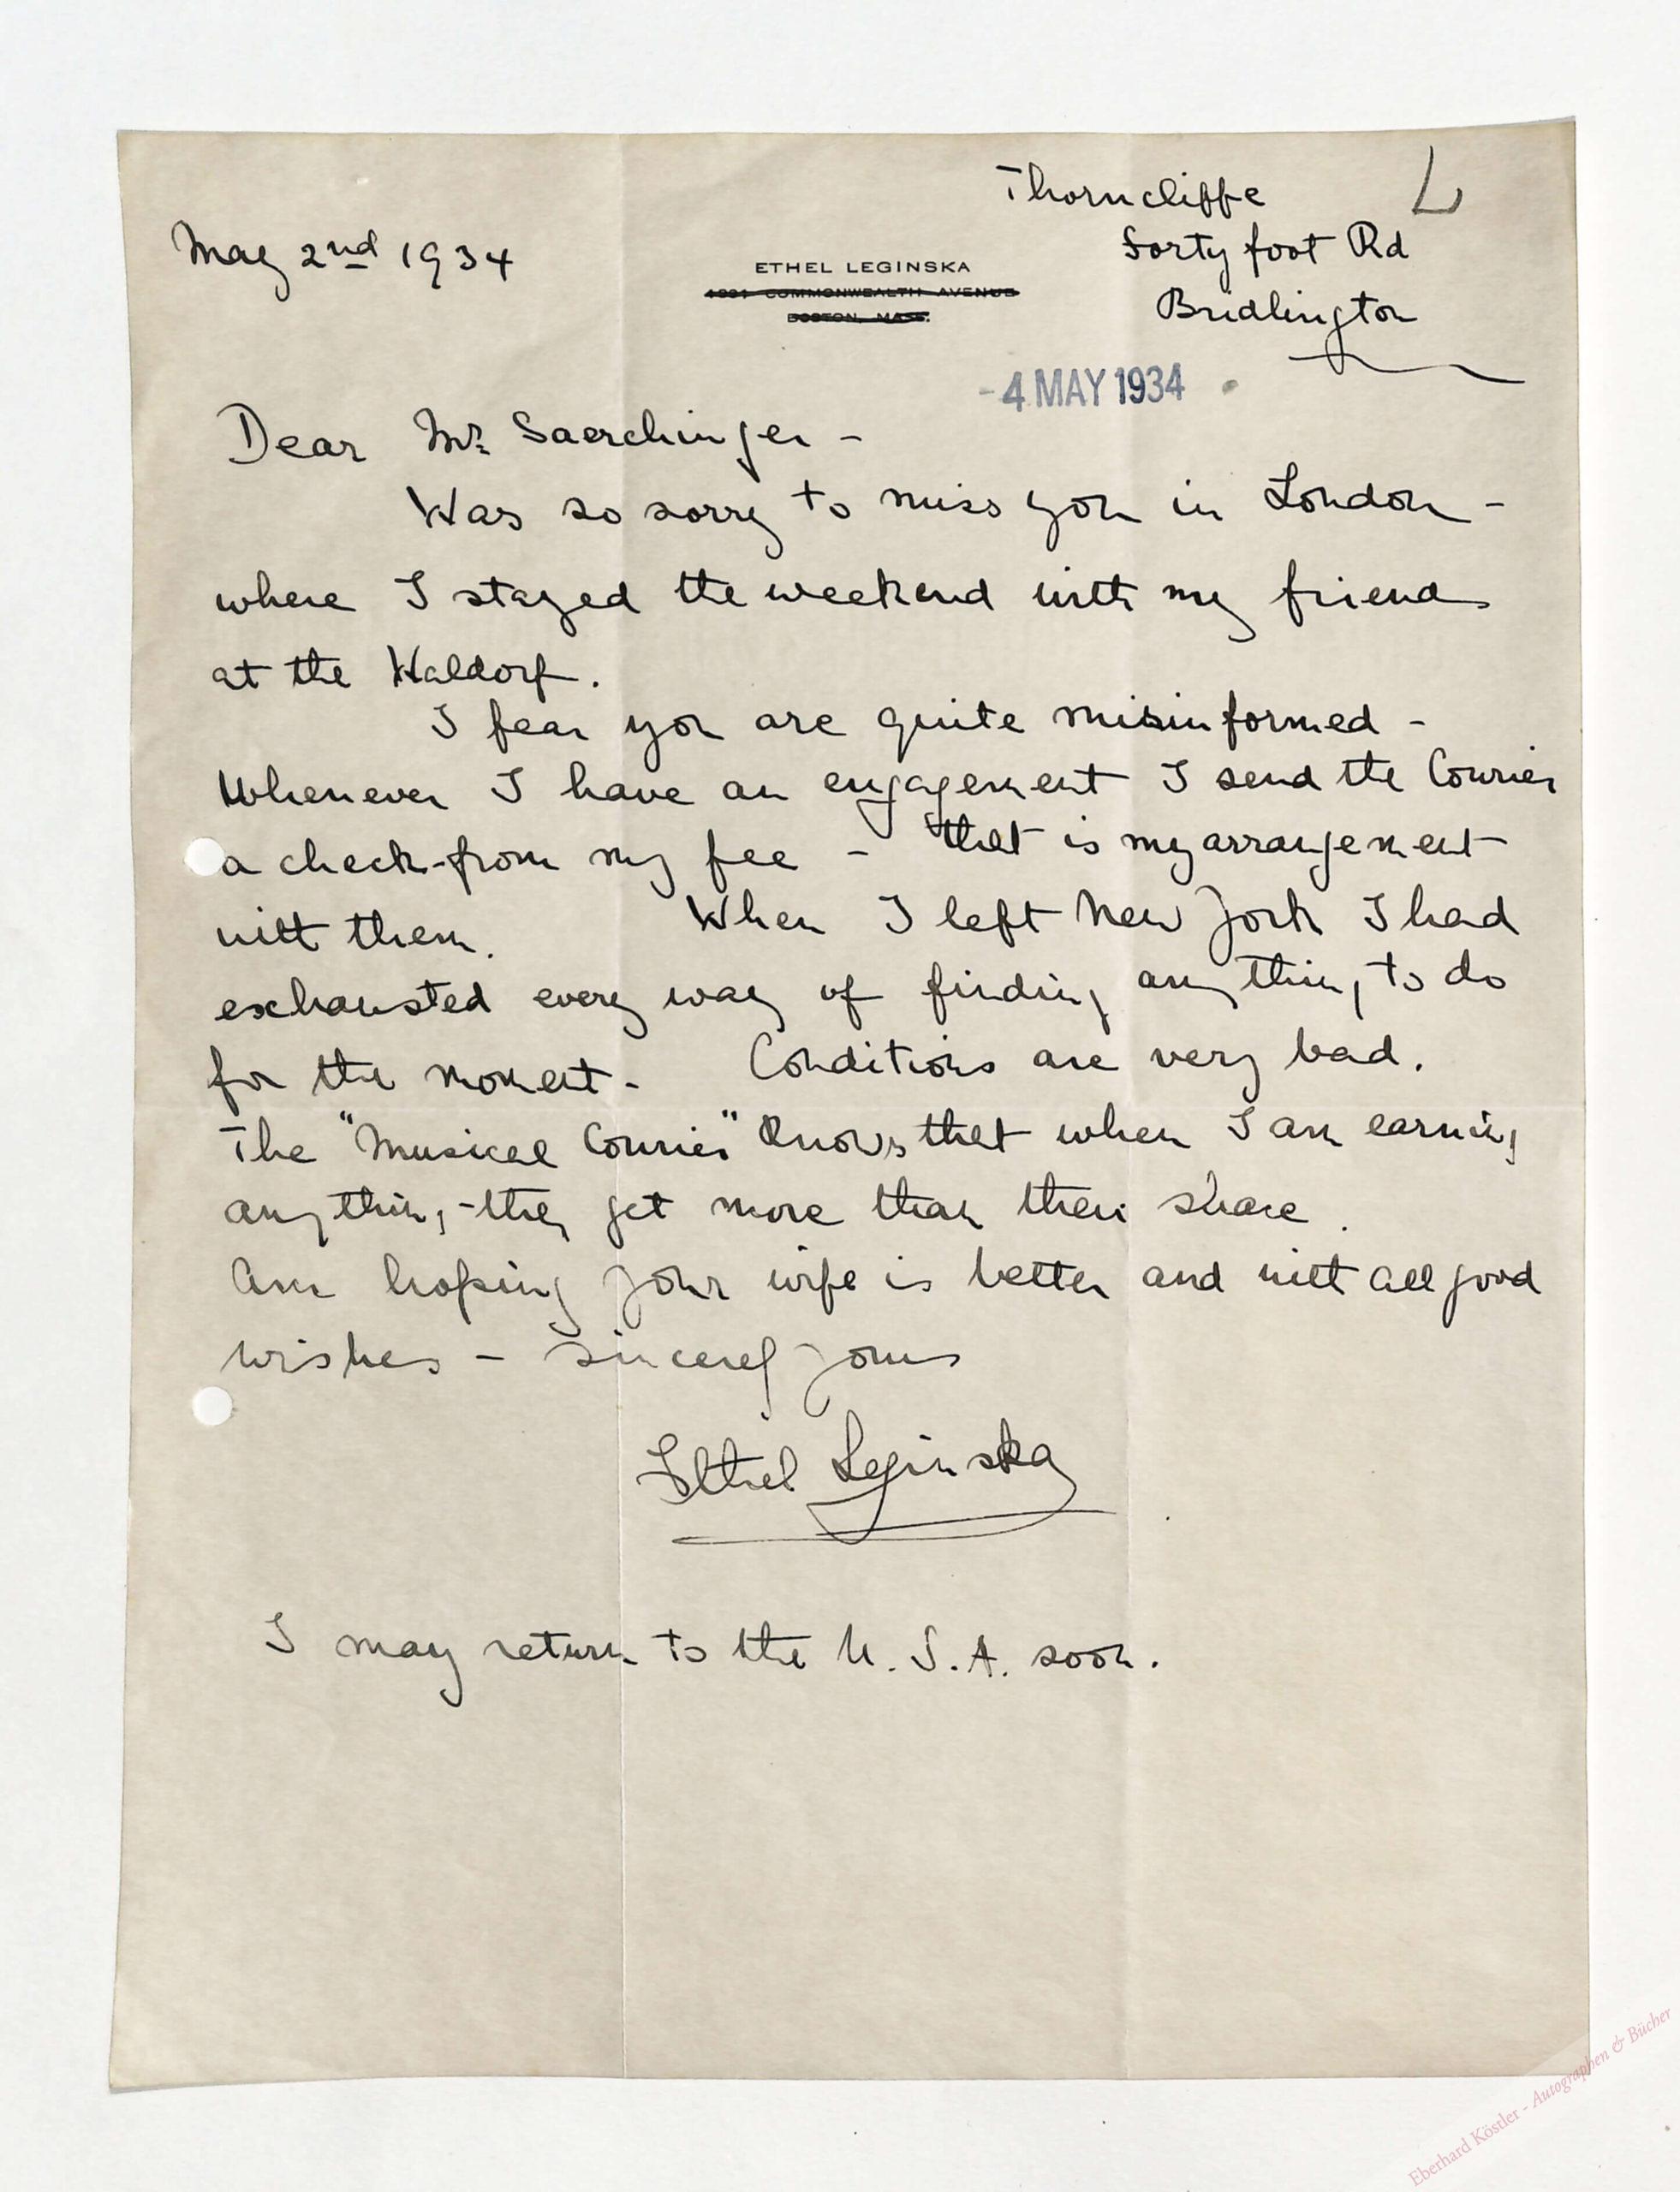 Thorncliffe
L
May 2nd 1934
Forty foot Rd
ETHEL LEGINSKA
COMMONWEALTH AVENUE
BOSTON, MASS.
Bridlington
-4 MAY 1934
Dear Mr. Saerchinger -
Was so sorry to miss you in London -
where I stayed the weekend with my friends
at the Waldorf.
I fear you are quite misinformed -
Whenever I have an engagement I send the Courier
a check from my fee - that is my arrangement
with them. When I left New York I had
exhausted every way of finding anything to do
for the moment - Conditions are very bad.
The "Musical Courier" knows that when I am earning
anything - they get more than their share.
Am hoping your wife is better and with all good
wishes - sincerely yours
Ethel Leginska
I may return to the U.S.A. soon.
Eberhard Köstler - Autographen & Bücher